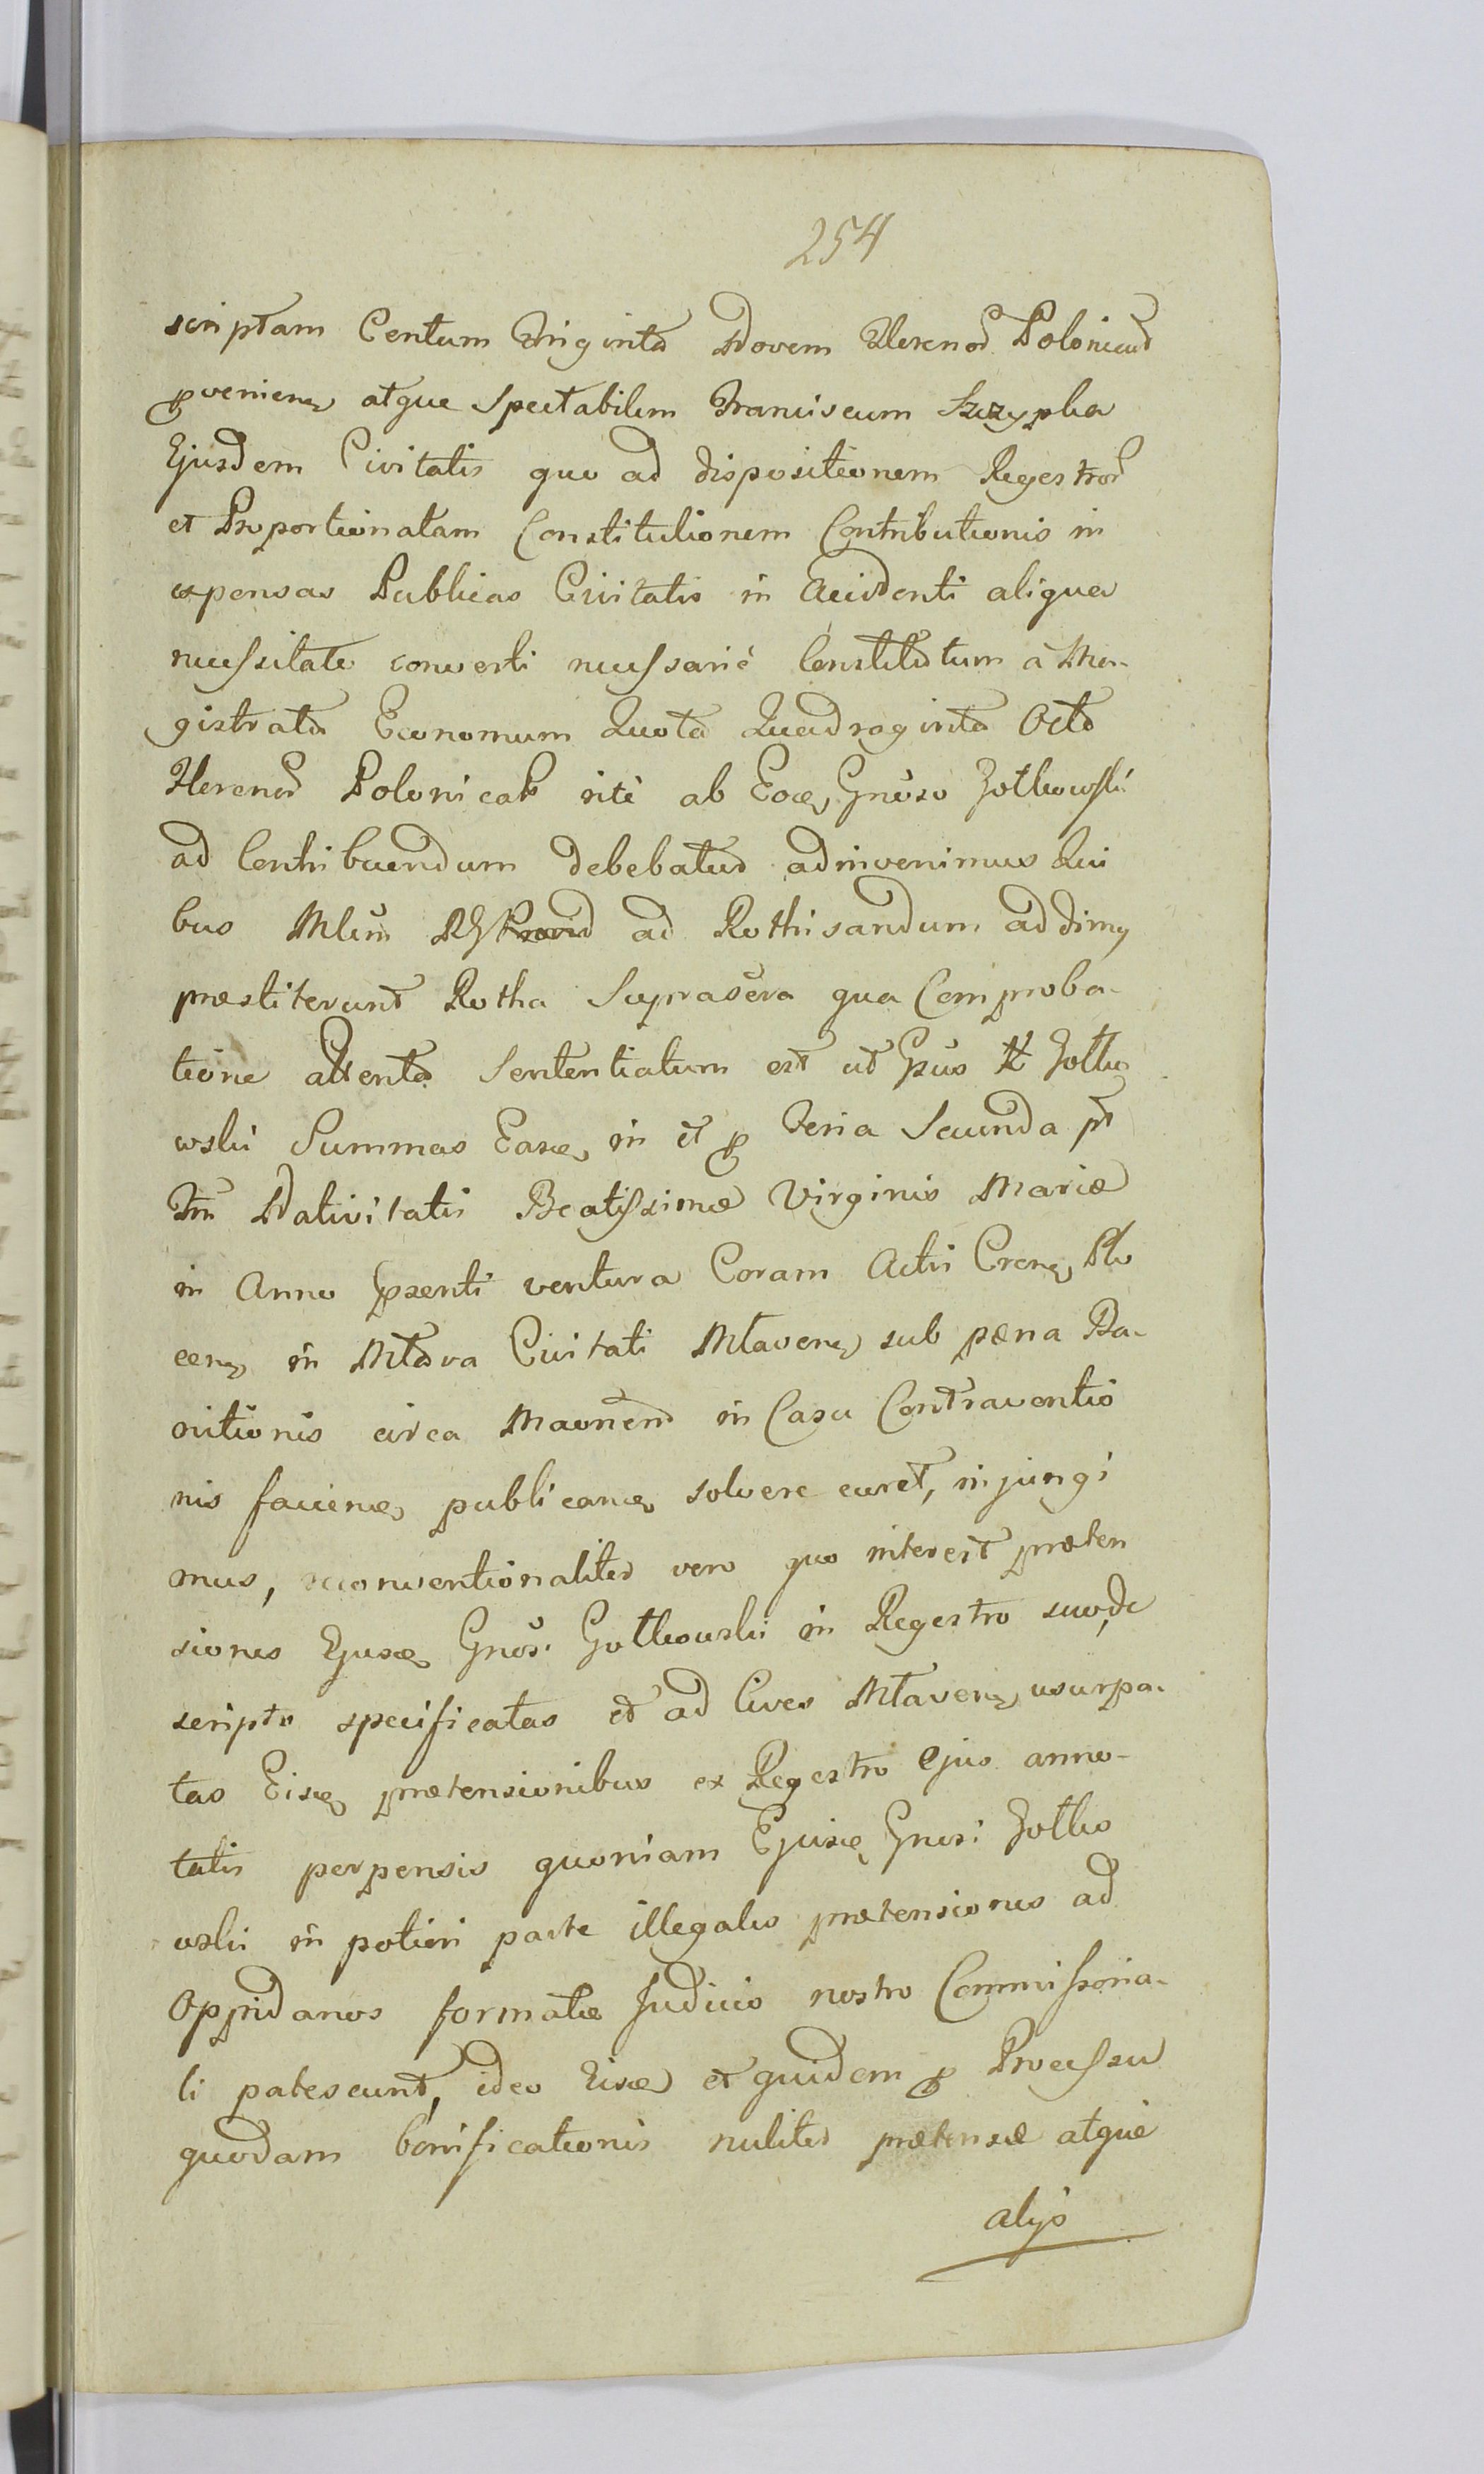 254
scriptam Centum Triginta Novem Flrenor Polonical
pvenien, atque Spectabilem Franciscum Szczypka
Ejusdem Civitatis quo ad dispositionem Regestror
et Proportionatam Constitutionem Contributionis in
expensas Publicas Civitatis in Accidenti aliqua
necessitate converti necessarie Constitutum à Ma-
gistratu Economum Quota Quadraginta Octo
Florenor Polonical rite ab Eoq, Gnoso Zołkowski
ad Contribuendum debebatur adinvenimus Qui
bus Mlem ad Rothisandum addimq
præstiterunt Rotha Suprasēra qua Comproba-
tione attenta Sententiatum est ut Gsus Zołko
wski Summas Easq, in et p Feria Secunda pt
Ftm Nativitatis Beatissimæ Virginis Mariæ
in Anno pzenti ventura Coram Actis Cren, Plo
cen, in Mława Civitati Mlaven, sub pæna Ba-
nitionis circa in Casu Contraventio
nis facienq, publicanq, solvere curet, injungi
mus, reconventionaliter vero quo interest præten
siones Ejusq, Gnosi Zołkowski in Regestro suo, de
scripto specificatas et ad Cives Mlaven, usurpa-
tas Eisq, prætensionibus ex Regestro Ejus anno-
tatis perpensis quoniam Ejusq, Gnosi Zołko
wski in potiori parte illegales prætensiones ad
Oppidanos formatæ Judicio nostro Commissoria-
li patescunt, ideo Eisq et quidem p Processu
quodam bonificationis nuliter prætensæ atque
alijs